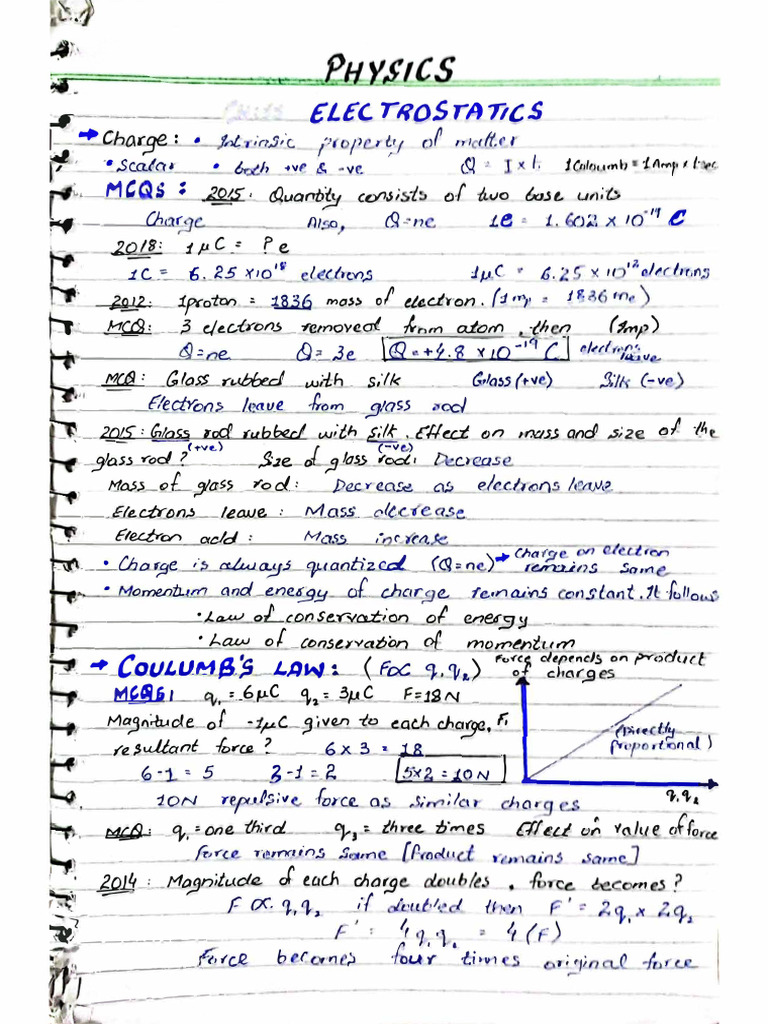 PHYSICS
ELECTROSTATICS
→ Charge: • Intrinsic property of matter
• Scalar • both +ve & -ve Q = I x t. 1Coloumb = 1Amp x 1sec
MCQS: 2015: Quantity consists of two base units
Charge Also, Q=ne 1e = 1.602 x 10⁻¹⁹ C
2018: 1μC = ? e
1C = 6.25 x10¹⁸ electrons 1μC = 6.25 x 10¹² electrons
2012: 1proton = 1836 mass of electron. (1mp = 1836 me)
MCQ: 3 electrons removed from atom, then (Imp)
Q=ne Q = 3e Q = +4.8 x 10⁻¹⁹ C electrons leave
MCQ: Glass rubbed with silk Glass (+ve) Silk (-ve)
Electrons leave from glass rod
2015: Glass rod rubbed with silk. Effect on mass and size of the
(+ve) (-ve)
glass rod? Size of glass rod: Decrease
Mass of glass rod: Decrease as electrons leave
Electrons leave: Mass decrease
Electron add: Mass increase
• Charge is always quantized (Q=ne) → Charge on electron remains same
• Momentum and energy of charge remains constant. It follows
• Law of conservation of energy
• Law of conservation of momentum
→ COULUMB'S LAW: (F∝ q₁q₂) Force depends on product of charges
MCQS: q₁ = 6μC q₂ = 3μC F=18N
Magnitude of -1μC given to each charge, F,
resultant force? 6 x 3 = 18 (Directly proportional)
6-1 = 5 3-1 = 2 5x2 = 10N
q₁q₂
10N repulsive force as similar charges
MCQ: q₁ = one third q₃ = three times Effect on value of force
Force remains same [Product remains same]
2014: Magnitude of each charge doubles, force becomes?
F ∝ q₁q₂ if doubled then F' = 2q₁ x 2q₂
F' = 4q₁q₂ = 4(F)
Force becomes four times original force